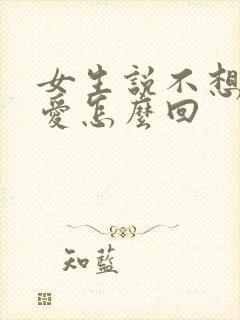 女生説不想
愛怎麼回
知藍